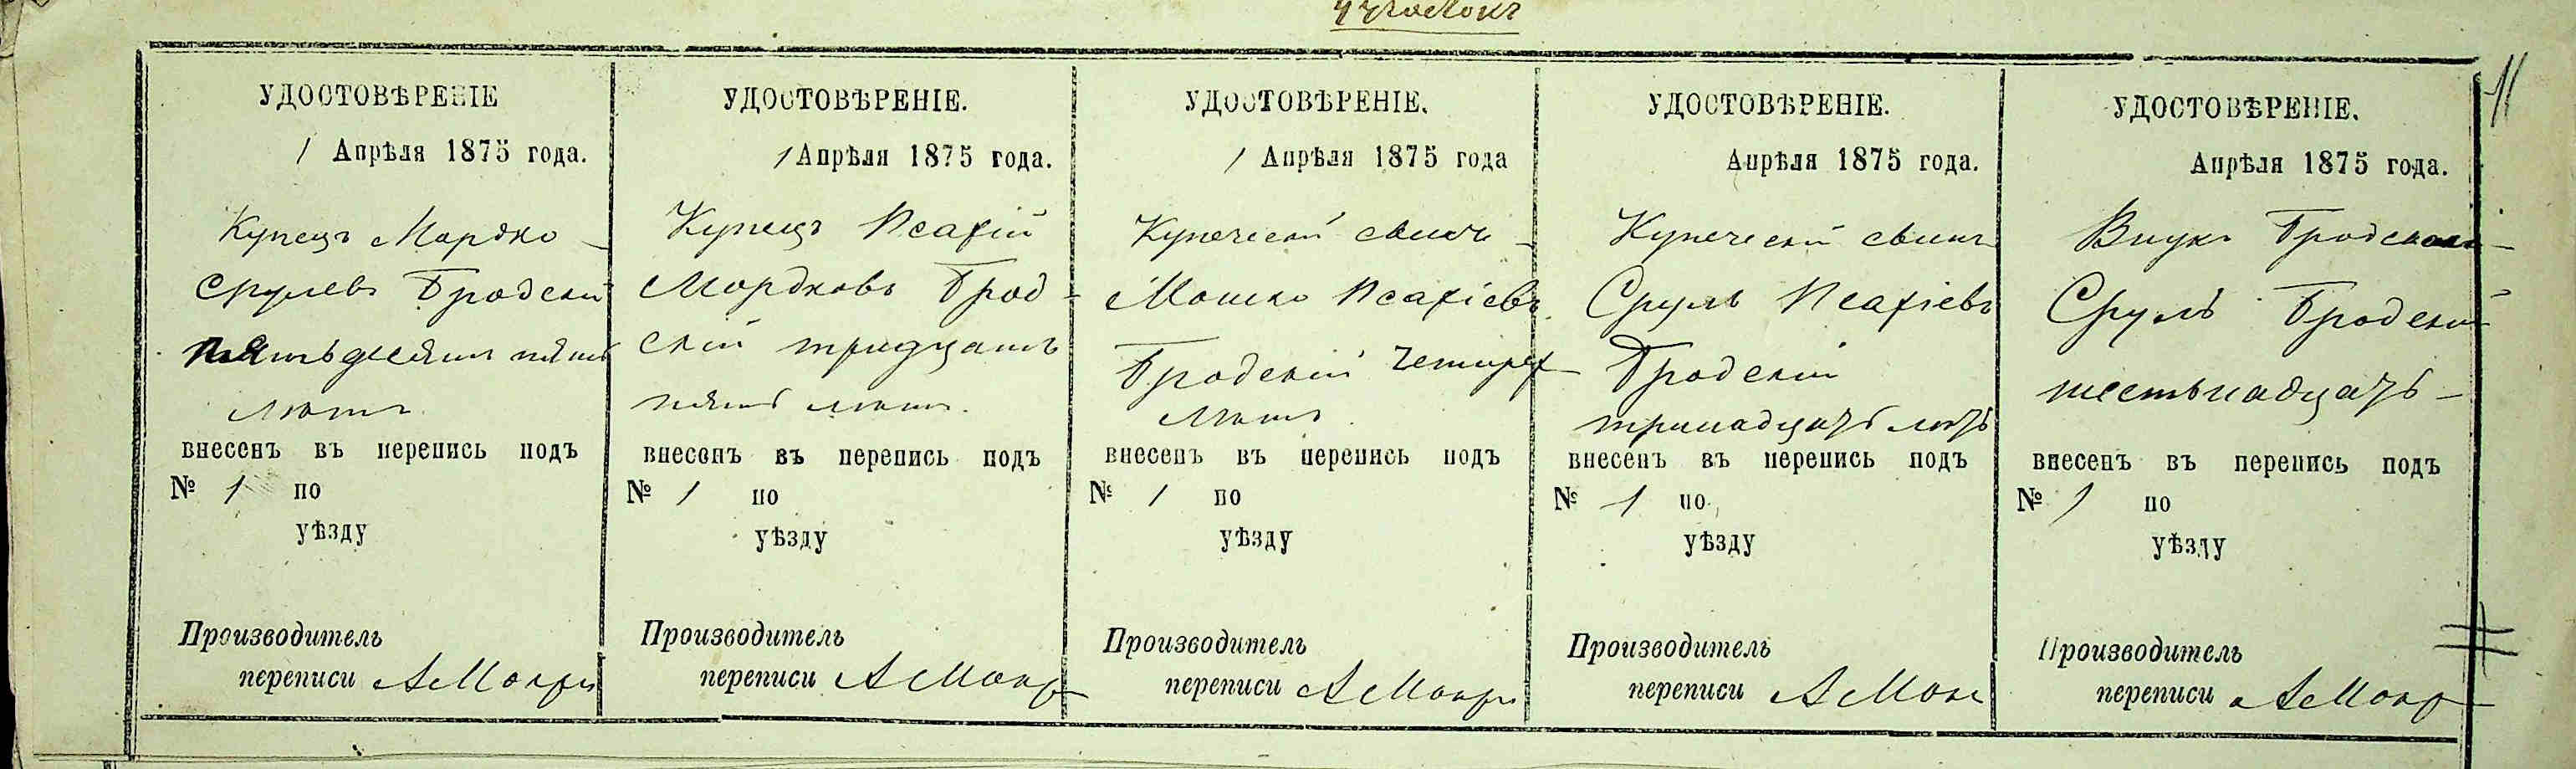 УДОСТОВѢРЕНІЕ
1 Апрѣля 1875 года.
Купецъ Мордко
Срулевъ Бродскій
пятьдесятъ пять
лѣтъ
внесенъ въ перепись подъ
№ 1 по
уѣзду
Производитель
переписи
УДОСТОВѢРЕНІЕ.
1 Апрѣля 1875 года.
Купецъ Исахій
Мордковъ Брод-
скій тридцать
пять лѣтъ.
внесенъ въ перепись подъ
№ 1 по
уѣзду
Производитель
переписи
УДОСТОВѢРЕНІЕ.
1 Апрѣля 1875 года
Купеческій сынъ
Мошко Исахіевъ
Бродскій четырех
лѣтъ
внесенъ въ перепись подъ
№ 1 по
уѣзду
Производитель
переписи
УДОСТОВѢРЕНІЕ.
Апрѣля 1875 года.
Купеческій сынъ
Сруль Исахіевъ
Бродскій
тринадцать лѣтъ
внесенъ въ перепись подъ
№ 1 по
уѣзду
Производитель
переписи
УДОСТОВѢРЕНІЕ.
Апрѣля 1875 года.
Внукъ
Сруль Бродскій
шестьнадцать
внесенъ въ перепись подъ
№ 1 по
уѣзду
Производитель
переписи
11